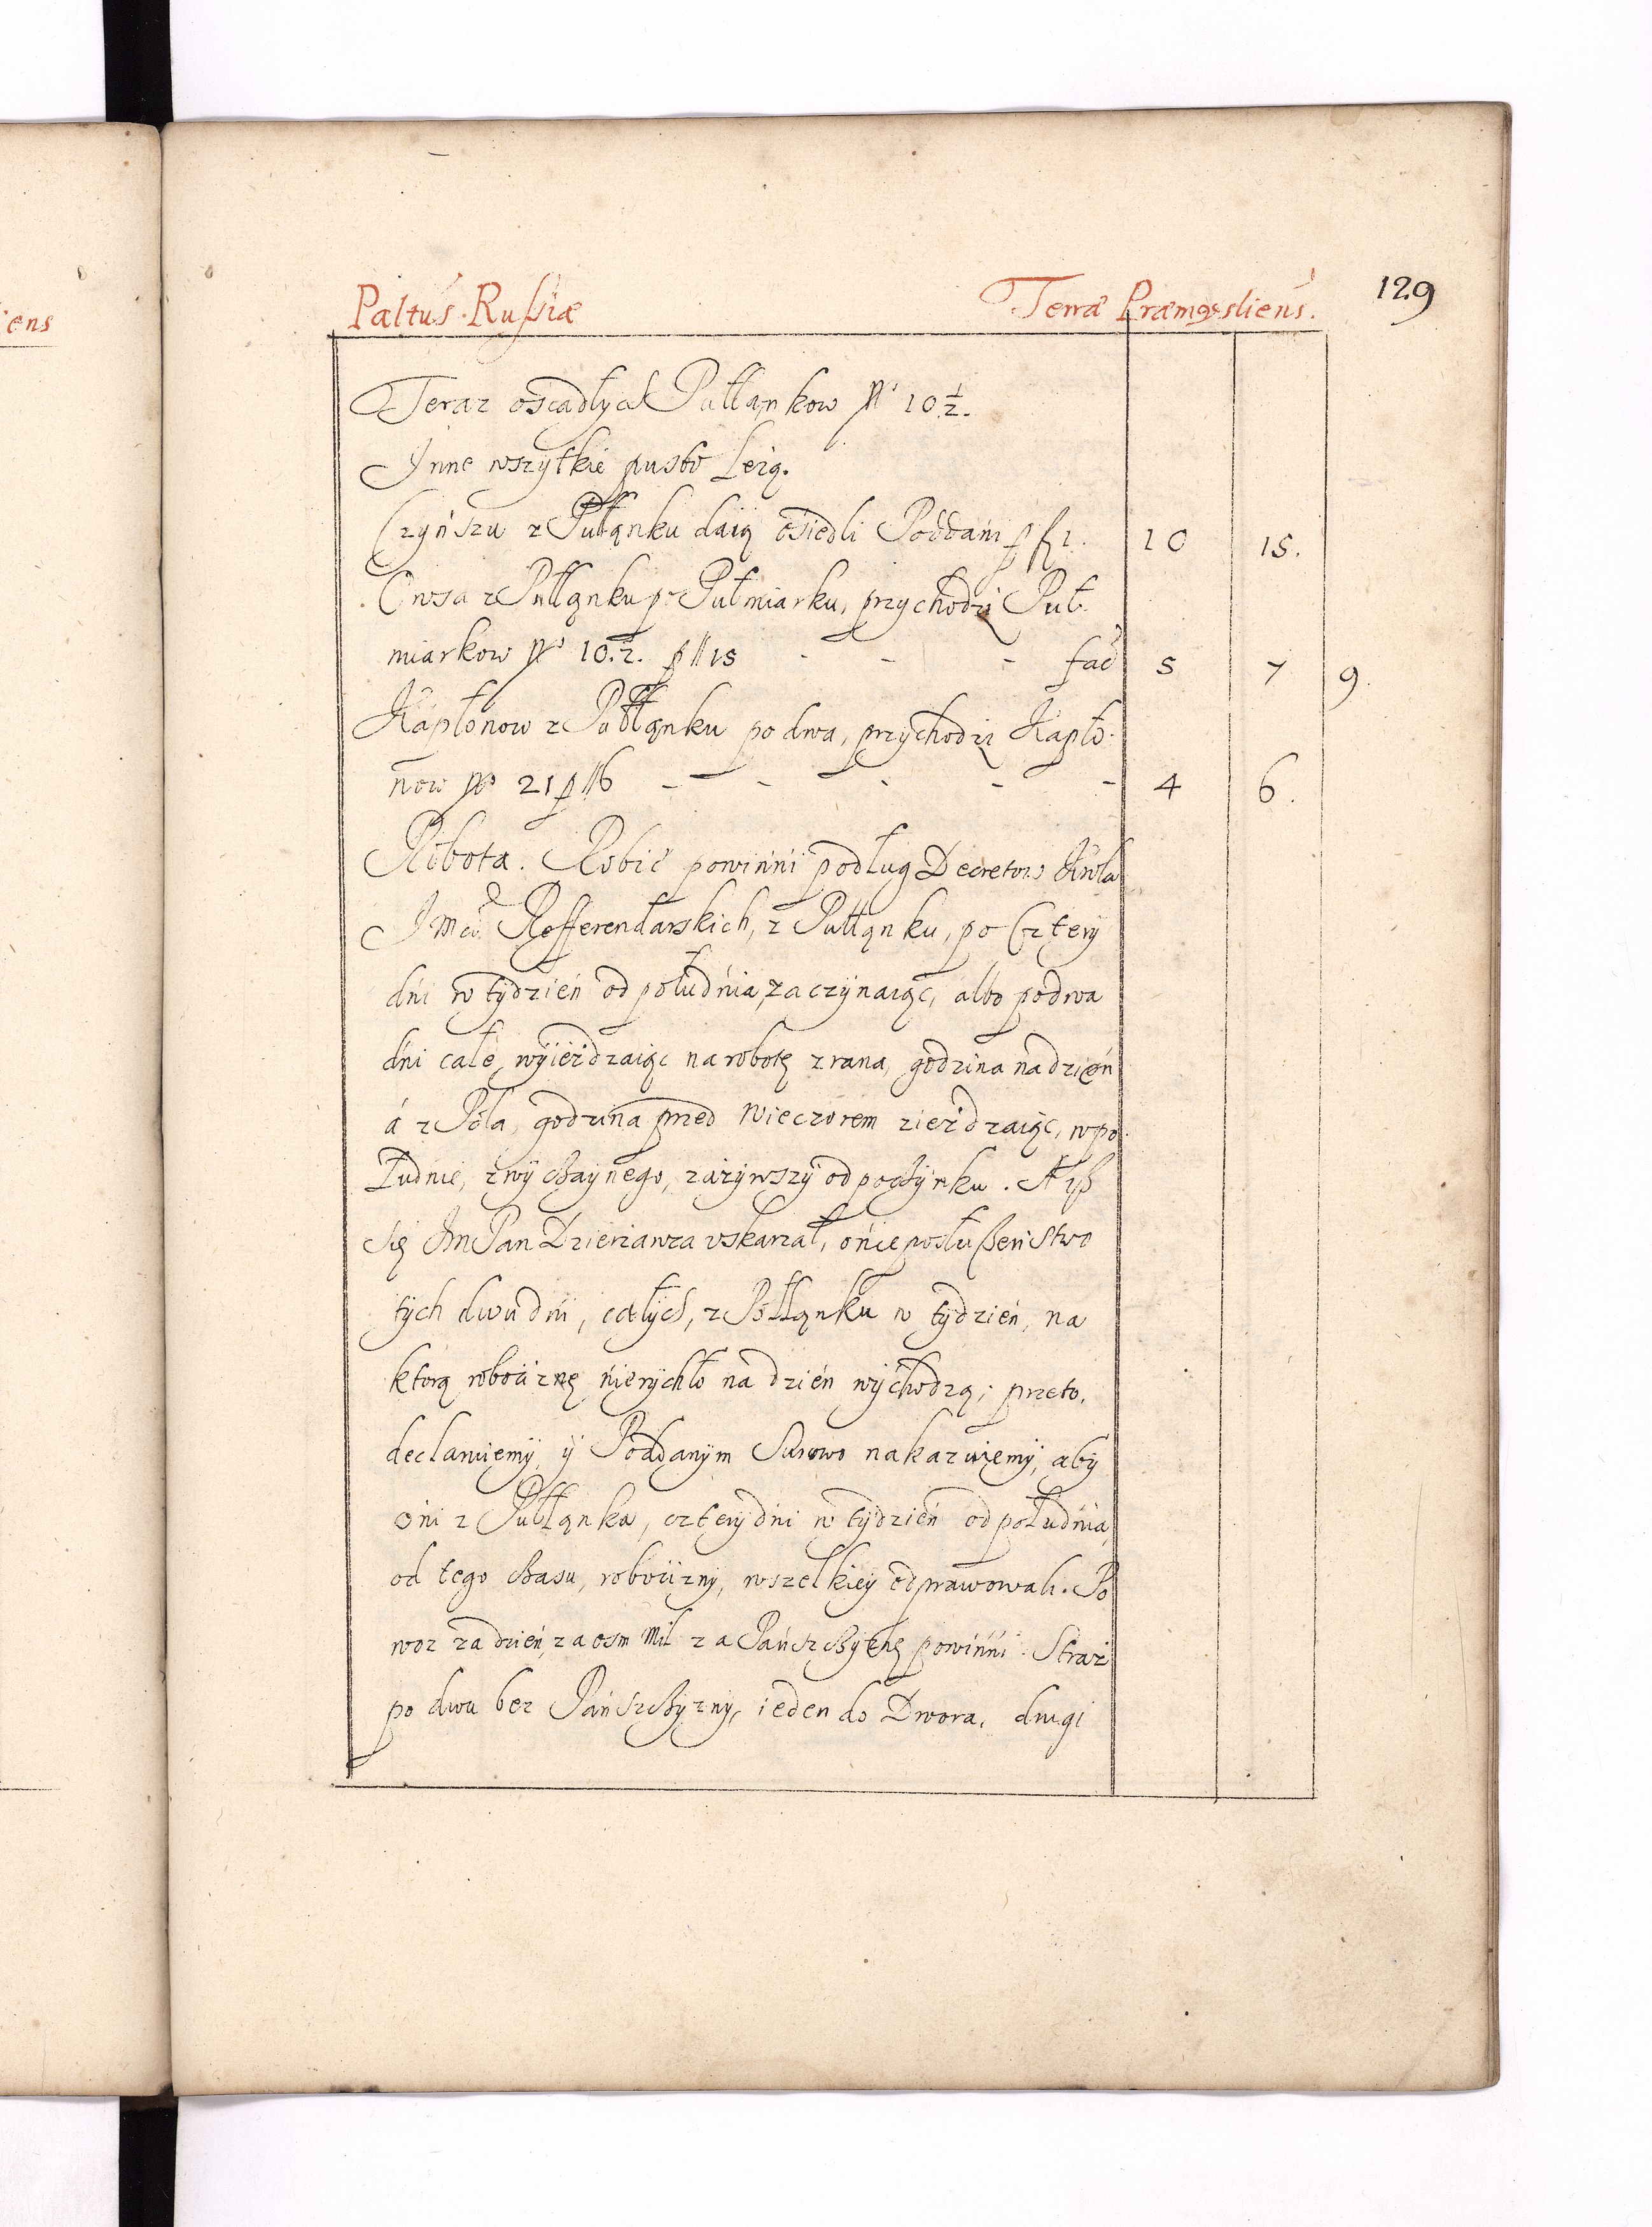 iens
Paltus. Russiæ Terræ Præmysliens. 129
Teraz osiadłych Pułłankow Nro 10 ½.
Inne wszytkie pusto Leżą.
Czynszu z Pułłąnku daią osiedli Poddani p f 1. 10 15.
Owsa z Pułłąnku po Pułmiarku, przychodzi Puł-
miarkow Nro 10. ½. p // 15 - - - fac 5 7 9.
Kapłonow z Pułłąnku po dwa, przychodzi Kapło-
now Nro 21 p // 6 - - - - - 4 6.
Robota. Robić powinni podług Decretow Krola
Jmci Refferendarskich, z Pułłąnku, po Cztery
dni w tydzień od południa, zaczynaiąc, albo po dwa
dni całe, wyieżdzaiąc na robotę z rana, godzina na dzień
á z Pola, godzina przed wieczorem zieżdzaiąc, w po-
łudnie, zwyczaynego, zażywszy odpoczynku. A iß
się Jm Pan Dzierżawca vskarżał, o nieposłußeństwo
tych dwu dni, całych, z Półłąnku w tydzień, na
ktorą roboćiznę nierychło na dzień wychodzą; przeto,
declaruiemy, y Poddanym Surowo nakazuiemy, aby
oni z Pułłąnka, cztery dni w tydzień od południa,
od tego czasu, roboćizny, wszelkiey odprawowali. Po
woz za dzień, za osm Mil za Pańszczyznę powinni. Straż
po dwu bez Pańszczyzny, ieden do Dwora, drugi